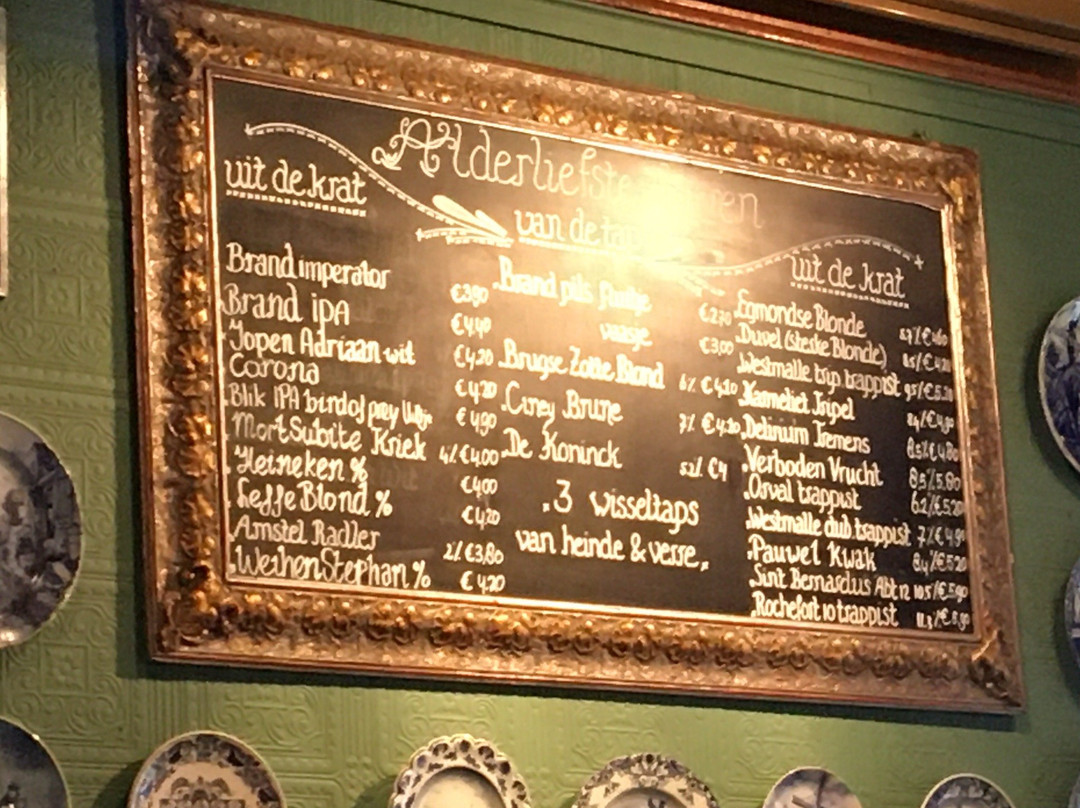 Alderliefste
uit de krat
Brand imperator €3,80
Brand iPA €4,40
Jopen Adriaan wit €4,20
Corona €4,20
Blik IPA bird of prey €4,90
Mort Subite Kriek 4% €4,00
Heineken % €4,00
Leffe Blond % €4,20
Amstel Radler 2% €3,80
WeihenStephan % €4,20
van de tap
Brand pils fluitje €2,70
vaasje €3,00
Brugse Zotte Blond 6% €4,10
Ciney Brune 7% €4,20
De Koninck 5.2% €4
3 wisseltaps
van heinde & verre
uit de krat
Egmondse Blonde
Duvel (sterke Blonde)
Westmalle trip. trappist 9,5% €5,20
Karmeliet Tripel 8,4% €4,90
Delirium Tremens 8.5% €4,80
Verboden Vrucht 8,5% 5.80
Orval trappist 6.2% €5,20
Westmalle dub. trappist 7% €4,90
Pauwel Kwak 8,4% €5,20
Sint Bernardus Abt 12 10.5% €5,90
Rochefort 10 trappist 11.3%